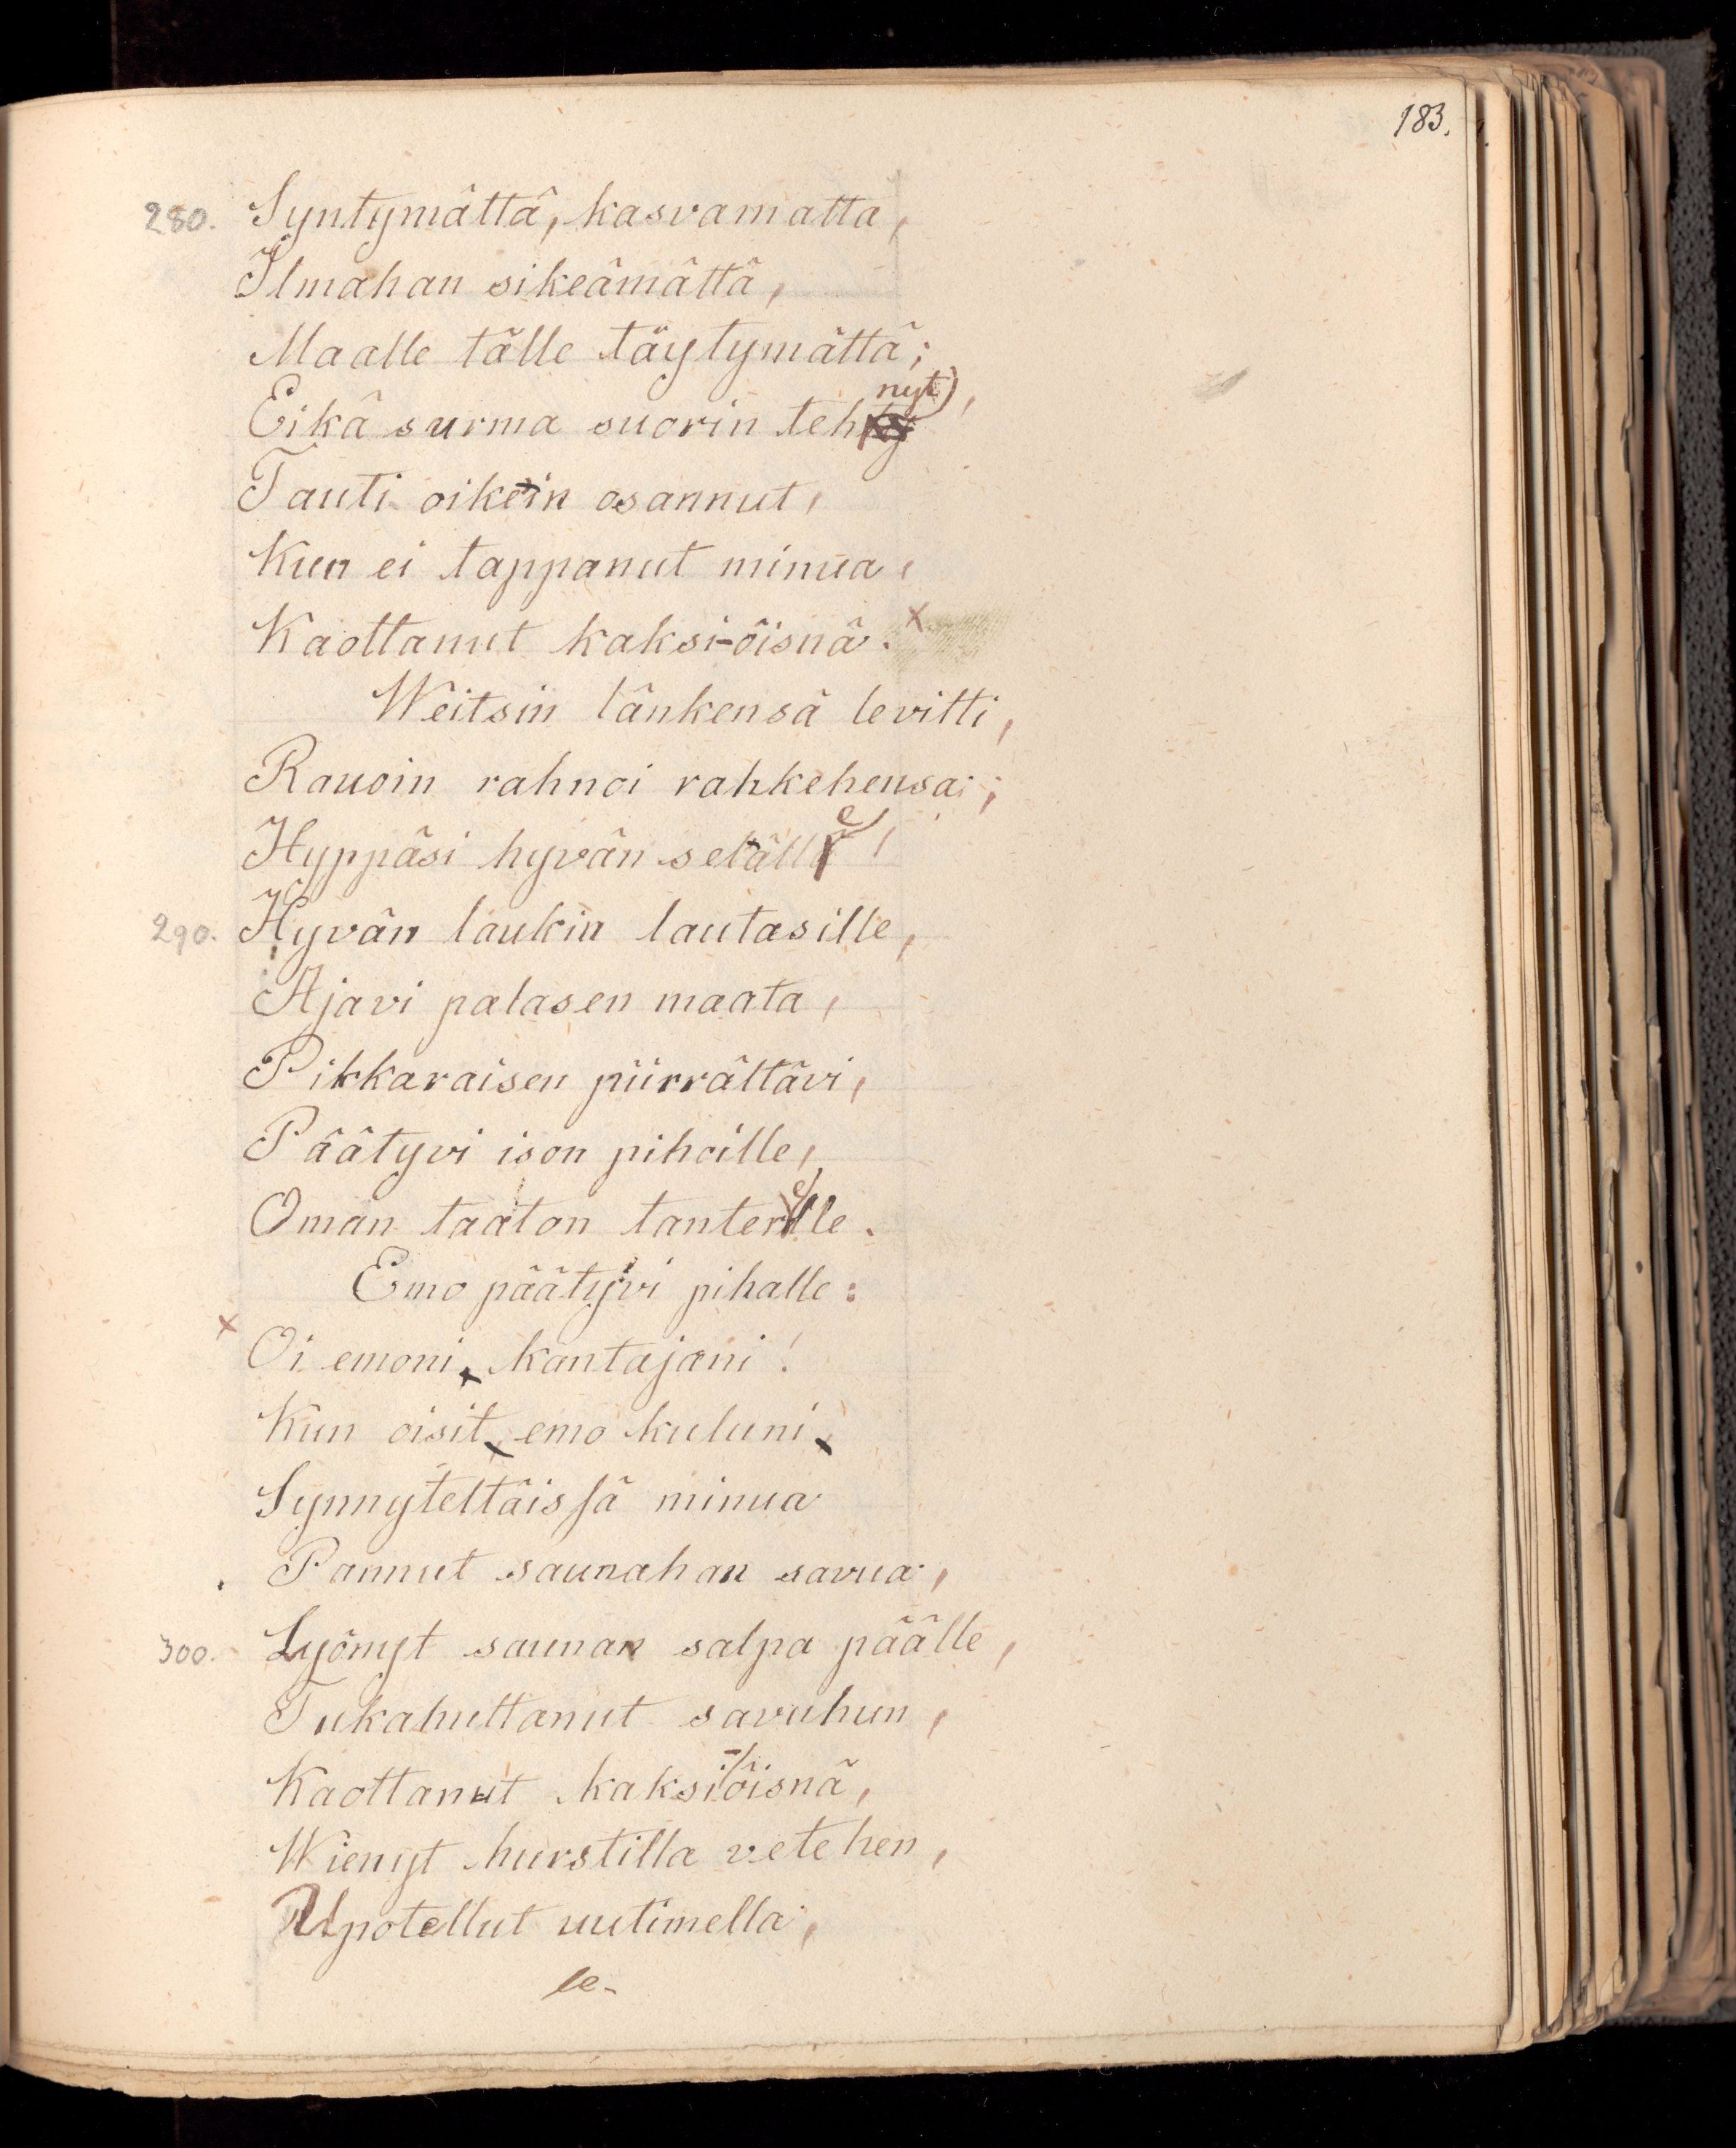 183.
280. Syntymättä, kasvamatta,
Ilmahan sikeämättä,
Maalle tälle täytymättä;
Eikä surma suorin tehnyt,
Tauti oikein osannut,
Kun ei tappanut minua,
Kaottanut kaksi-öisnä. x
Weitsin länkensä levitti,
Rauoin rahnoi rahkehensa;
Hyppäsi hyvän selälle,
290. Hyvän laukin lautasille,
Ajavi palasen maata,
Pikkaraisen piirrättävi,
Päätyvi ison pihoille,
Oman taaton tanterelle.
Emo päätyvi pihalle:
x Oi emoni, kantajani!
Kun oisit, emo kuluni,
Synnyteltäissä minua
Pannut saunahan savua,
300. Lyönyt saunan salpa päälle,
Tukahuttanut savuhun,
Kaottanut kaksi-öisnä,
Wienyt hurstilla vetehen,
Upotellut uutimella,
le-